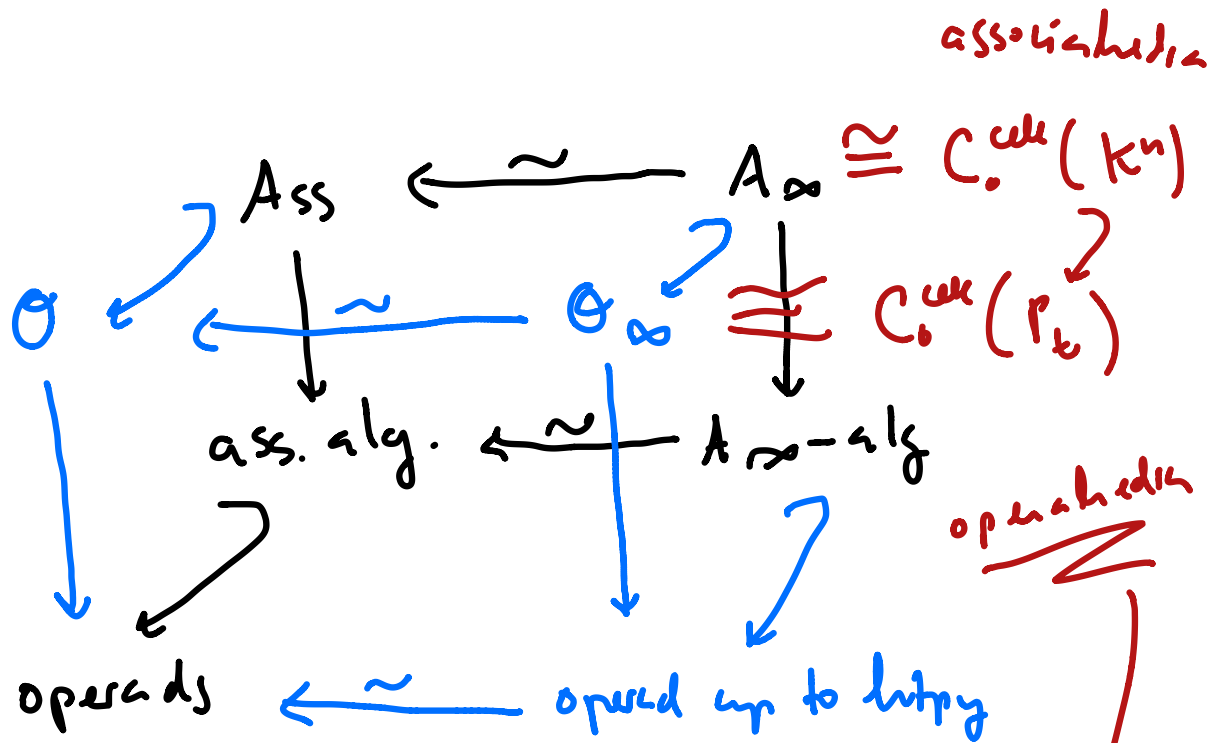 associahedra
Ass ←~ A∞ ≅ C•^cell (Kⁿ)
O ←~ O∞ ≅ C•^cell (P_t)
ass. alg. ←~ A∞-alg
operahedra
operads ←~ operad up to htpy